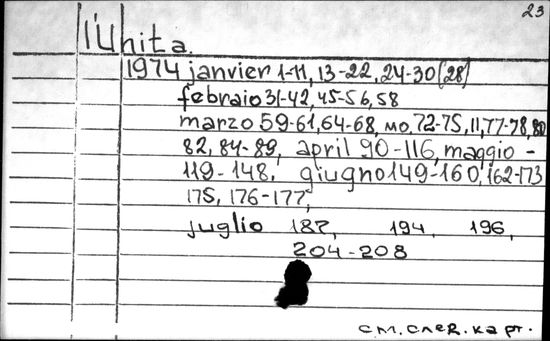 23
l'Unita.
1974 janvier 1-11, 13-22, 24-30 (28)
febraio 31-42, 45-56, 58
marzo 59-61, 64-68, 72-75, 77-78, 80
82, 84-89, april 90-116, maggio -
119-148. giugno 149-160, 162-173
175, 176-177,
juglio 187, 194, 196,
204-208
см. след. карт.